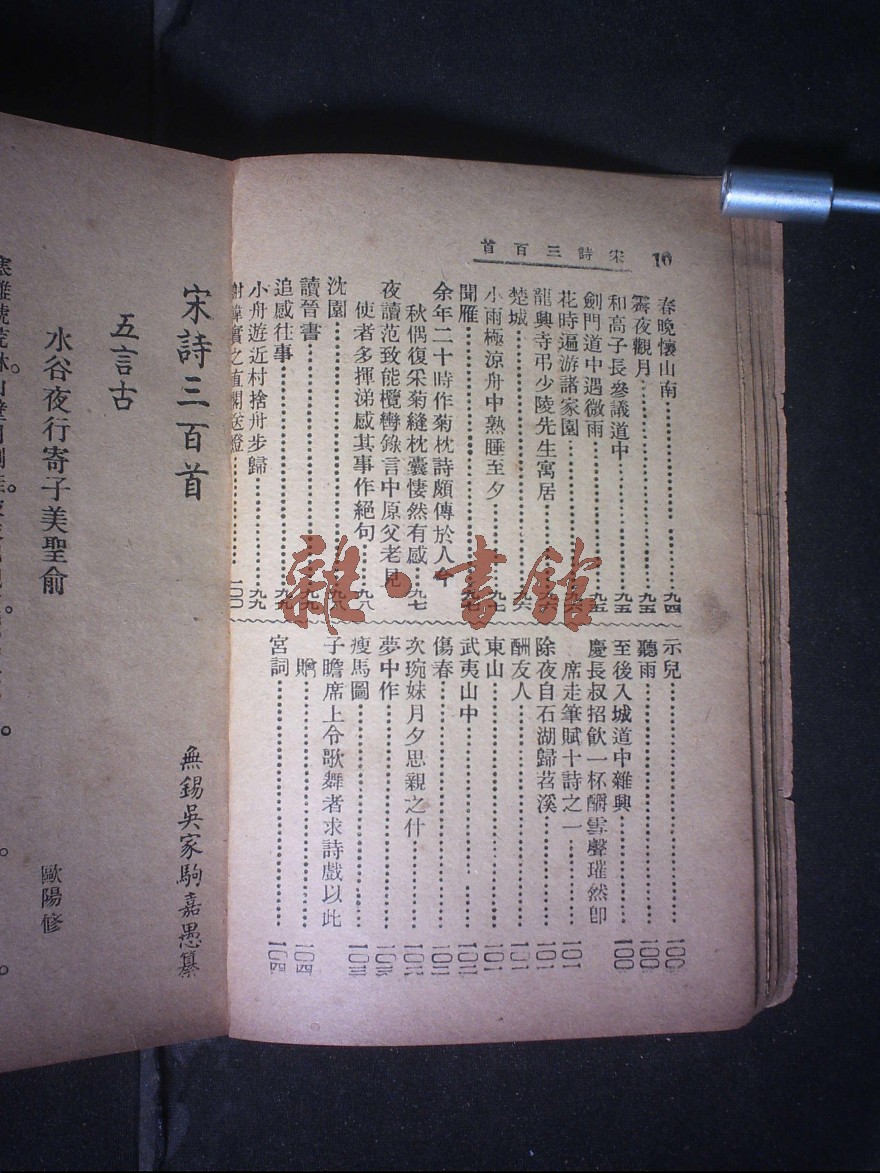 宋詩三百首
10
春晚懷山南……九四
霽夜觀月……九五
和高子長參議道中……九五
劍門道中遇微雨……九五
花時遍游諸家園……九六
龍興寺弔少陵先生寓居……九六
楚城……九六
小雨極涼舟中熟睡至夕……九七
聞雁……九七
余年二十時作菊枕詩頗傳於人今
秋偶復采菊縫枕囊悽然有感……九七
夜讀范致能攬轡錄言中原父老見
使者多揮涕感其事作絕句……九八
沈園……九八
讀晉書……九九
追感往事……九九
小舟遊近村捨舟步歸……九九
謝韓實之直閣送燈……一〇〇
示兒……一〇〇
聽雨……一〇〇
至後入城道中雜興……一〇〇
慶長叔招飲一杯釂雪聲璀然即
席走筆賦十詩之一……一〇一
除夜自石湖歸苕溪……一〇一
酬友人……一〇一
東山……一〇一
武夷山中……一〇二
傷春……一〇二
次琬妹月夕思親之什……一〇二
夢中作……一〇三
瘦馬圖……一〇三
子瞻席上令歌舞者求詩戲以此
贈……一〇四
宮詞……一〇四
宋詩三百首
無錫吳家駒嘉愚纂
五言古
水谷夜行寄子美聖俞
歐陽修
雜·書館